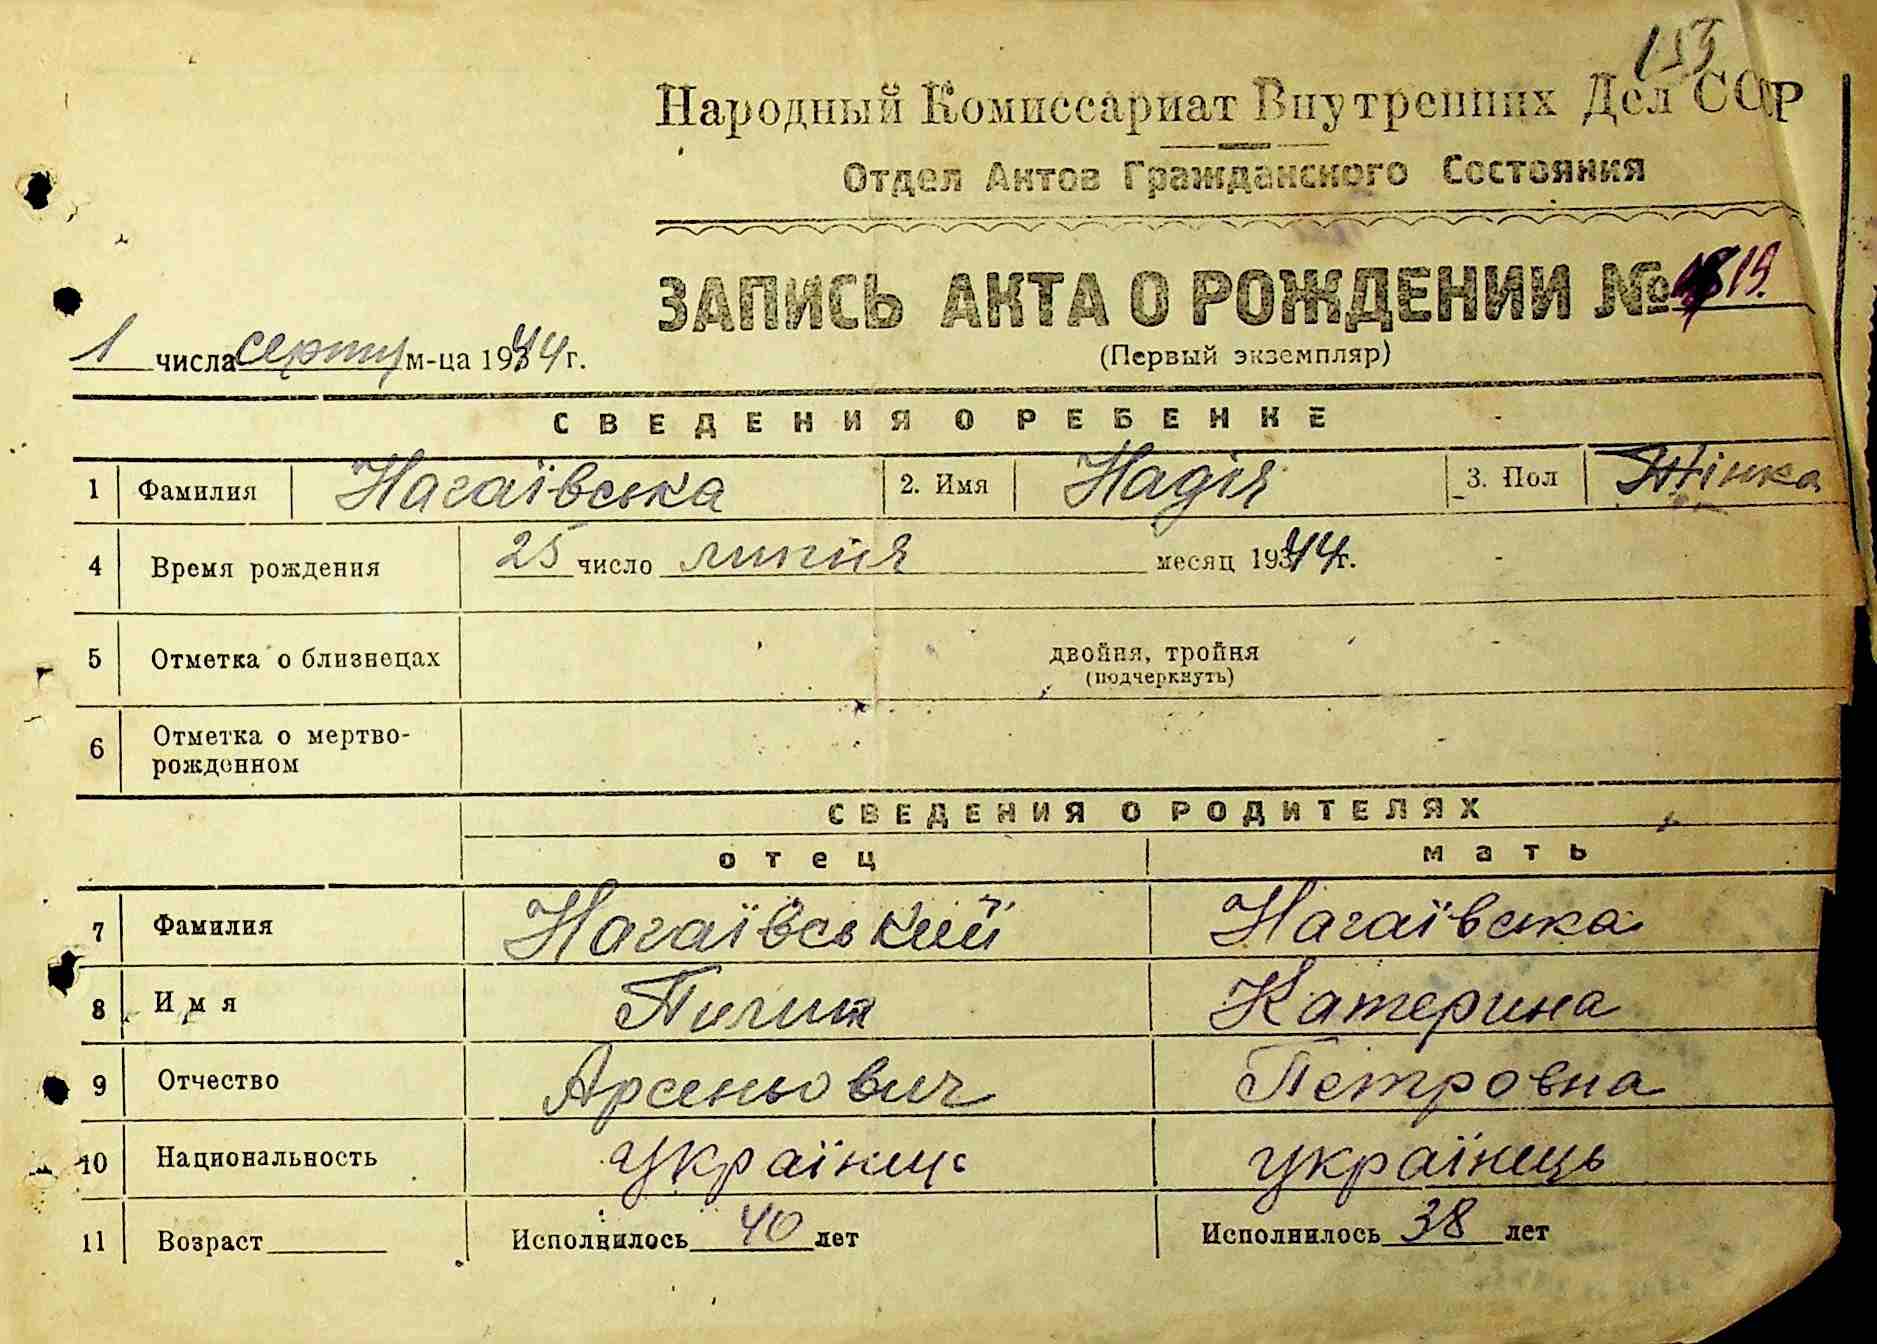 153
Народный Комиссариат Внутренних Дел ССР
Отдел Актов Гражданского Состояния
ЗАПИСЬ АКТА О РОЖДЕНИИ № 19.
(Первый экземпляр)
1 числа серпня м-ца 1944 г.
СВЕДЕНИЯ О РЕБЕНКЕ
1 Фамилия Нагаївська 2. Имя Надія 3. Пол Жінка
4 Время рождения 25 число липня месяц 1944 г.
5 Отметка о близнецах двойня, тройня
(подчеркнуть)
6 Отметка о мертво-
рожденном
СВЕДЕНИЯ О РОДИТЕЛЯХ
отец мать
7 Фамилия Нагаївський Нагаївська
8 Имя Пилип Катерина
9 Отчество Арсеньович Петровна
10 Национальность українець українець
11 Возраст Исполнилось 40 лет Исполнилось 38 лет